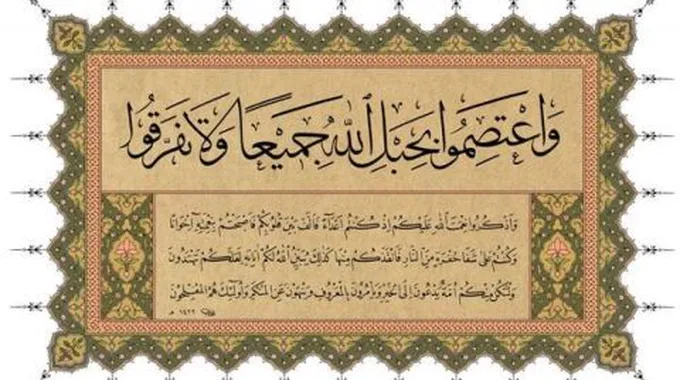 وَاعْتَصِمُوا بِحَبْلِ ٱللَّهِ جَمِيعًا وَلَا تَفَرَّقُوا
وَاذْكُرُوا نِعْمَتَ اللَّهِ عَلَيْكُمْ إِذْ كُنتُمْ أَعْدَاءً فَأَلَّفَ بَيْنَ قُلُوبِكُمْ فَأَصْبَحْتُم بِنِعْمَتِهِ إِخْوَانًا
وَكُنتُمْ عَلَى شَفَا حُفْرَةٍ مِنَ النَّارِ فَأَنقَذَكُم مِنْهَا كَذَلِكَ يُبَيِّنُ اللَّهُ لَكُمْ آيَاتِهِ لَعَلَّكُمْ تَهْتَدُونَ
وَلْتَكُن مِنكُمْ أُمَّةٌ يَدْعُونَ إِلَى الْخَيْرِ وَيَأْمُرُونَ بِالْمَعْرُوفِ وَيَنْهَوْنَ عَنِ الْمُنكَرِ وَأُولَئِكَ هُمُ الْمُفْلِحُونَ
١٤٢٢ هـ